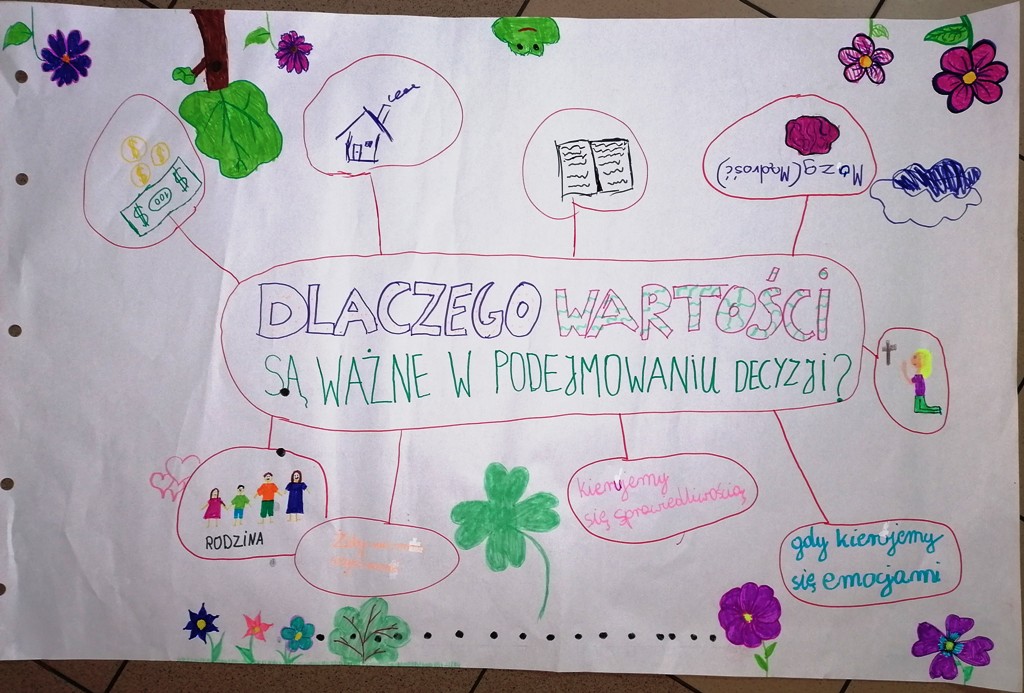 $ $ $
$ 100 $
Mózg (Mądrość)
DLACZEGO WARTOŚCI
SĄ WAŻNE W PODEJMOWANIU DECYZJI?
RODZINA
kierujemy
się sprawiedliwością
gdy kierujemy
się emocjami